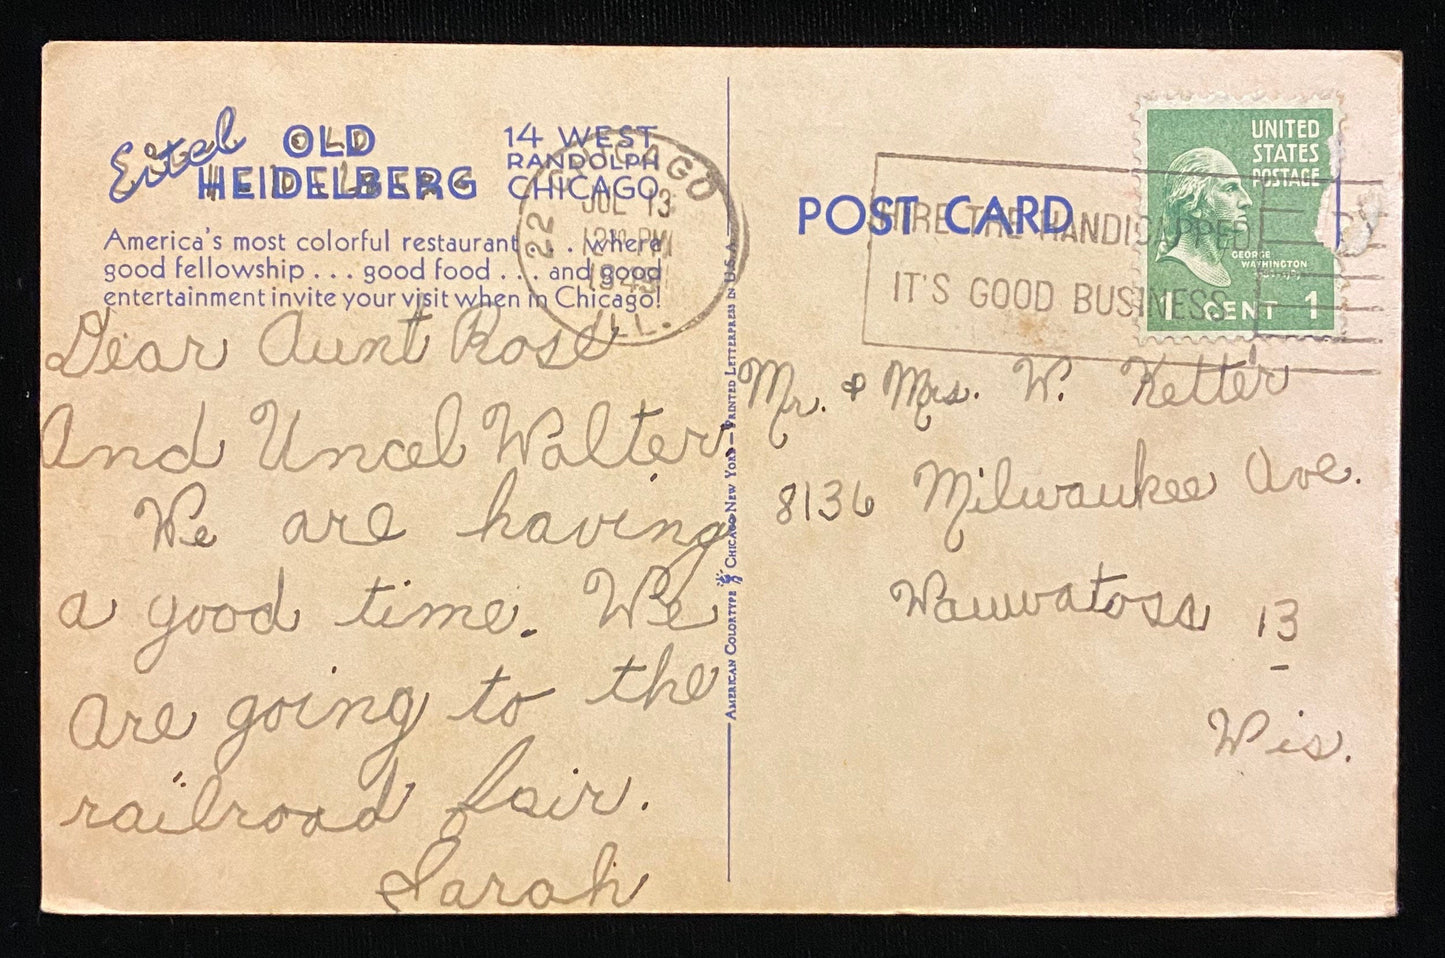 Eitel OLD HEIDELBERG
14 WEST
RANDOLPH
CHICAGO
America's most colorful restaurant . . . where
good fellowship . . . good food . . . and good
entertainment invite your visit when in Chicago!
CHICAGO
22
JUL 13
12 30 PM
1949
ILL.
Dear Aunt Rose
And Uncel Walter.
We are having
a good time. We
are going to the
railroad fair.
Sarah
AMERICAN COLORTYPE CHICAGO NEW YORK — PRINTED LETTERPRESS IN U.S.A.
POST CARD
HIRE THE HANDICAPPED
IT'S GOOD BUSINESS
UNITED
STATES
POSTAGE
GEORGE
WASHINGTON
1 CENT 1
Mr. & Mrs. W. Ketter
8136 Milwaukee Ave.
Wauwatosa 13
Wis.